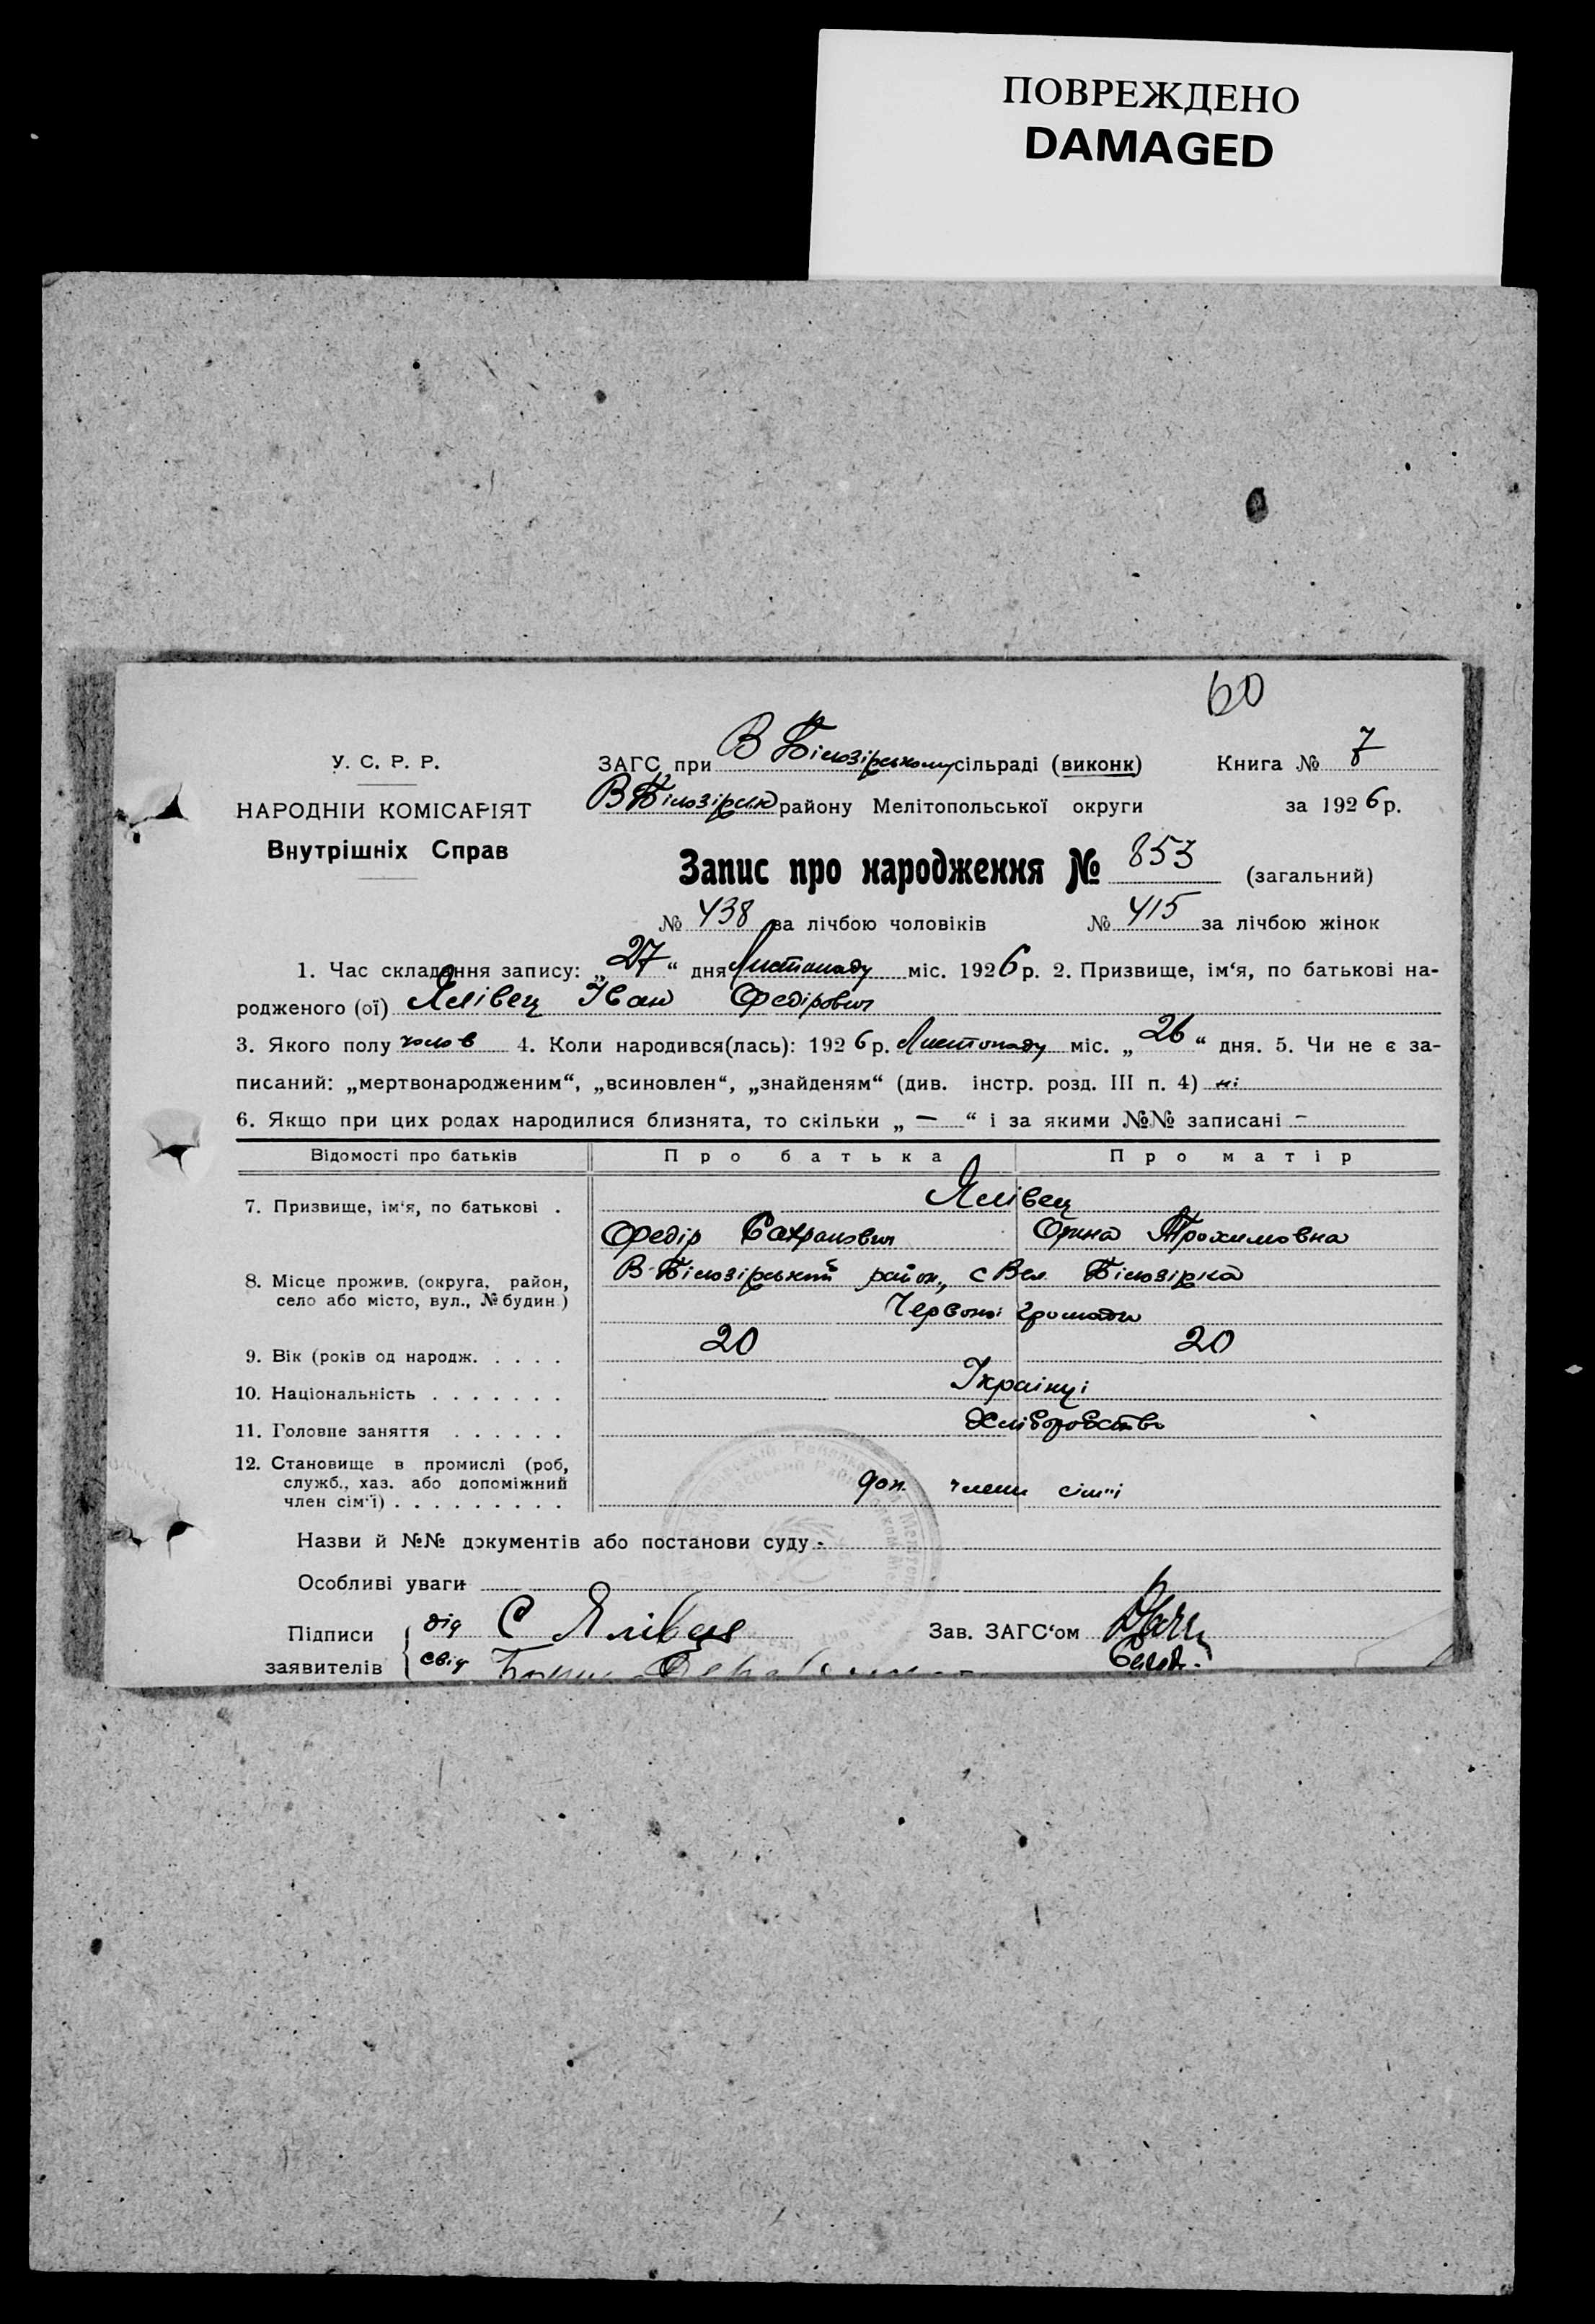 ПОВРЕЖДЕНО
DAMAGED
60
У. С. Р. Р.
НАРОДНІЙ КОМІСАРІЯТ
Внутрішніх Справ
ЗАГС при В Білозірському сільраді (виконк) Книга № 7
В Білозірськ району Мелітопольської округи за 1926 р.
Запис про народження № 853 (загальний)
№ 438 за лічбою чоловіків № 415 за лічбою жінок
1. Час складання запису: „27“ дня Листопаду міс. 1926 р. 2. Призвище, ім‘я, по батькові на-
родженого (ої) Ялівец Іван Федірович
3. Якого полу чолов 4. Коли народився(лась): 1926 р. Листопаду міс. „26“ дня. 5. Чи не є за-
писаний: „мертвонародженим“, „всиновлен“, „знайденям“ (див. інстр. розд. III п. 4) ні
6. Якщо при цих родах народилися близнята, то скільки „ — “ і за якими №№ записані -
Відомості про батьків Про батька Про матір
7. Призвище, ім‘я, по батькові . Ялівец
Федір Сахранович Орина Трохимовна
8. Місце прожив. (округа, район, село або місто, вул., № будин.) В-Білозірський район, с Вел Білозірка
Червоної громади
9. Вік (років од народж. . . . . 20 20
10. Національність . . . . . . . Українці
11. Головне заняття . . . . . . Хліборобство
12. Становище в промислі (роб,
служб., хаз. або допоміжний
член сім‘ї) . . . . . . . . . доп. члени сім'ї
Назви й №№ документів або постанови суду -
Особливі уваги
Підписи дід С Ялівец Зав. ЗАГС‘ом
заявителів свід